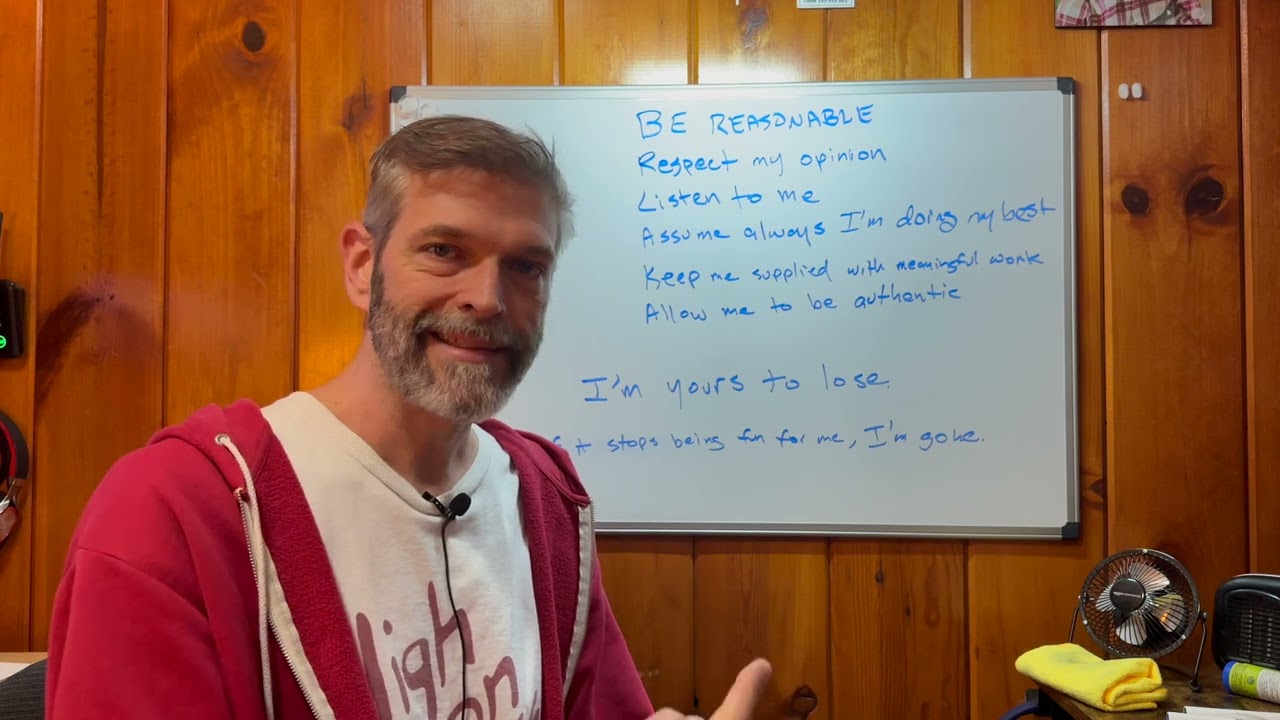 BE REASONABLE
Respect my opinion
Listen to me
Assume always I'm doing my best
Keep me supplied with meaningful work
Allow me to be authentic
I'm yours to lose.
it stops being fun for me, I'm gone.
High
on